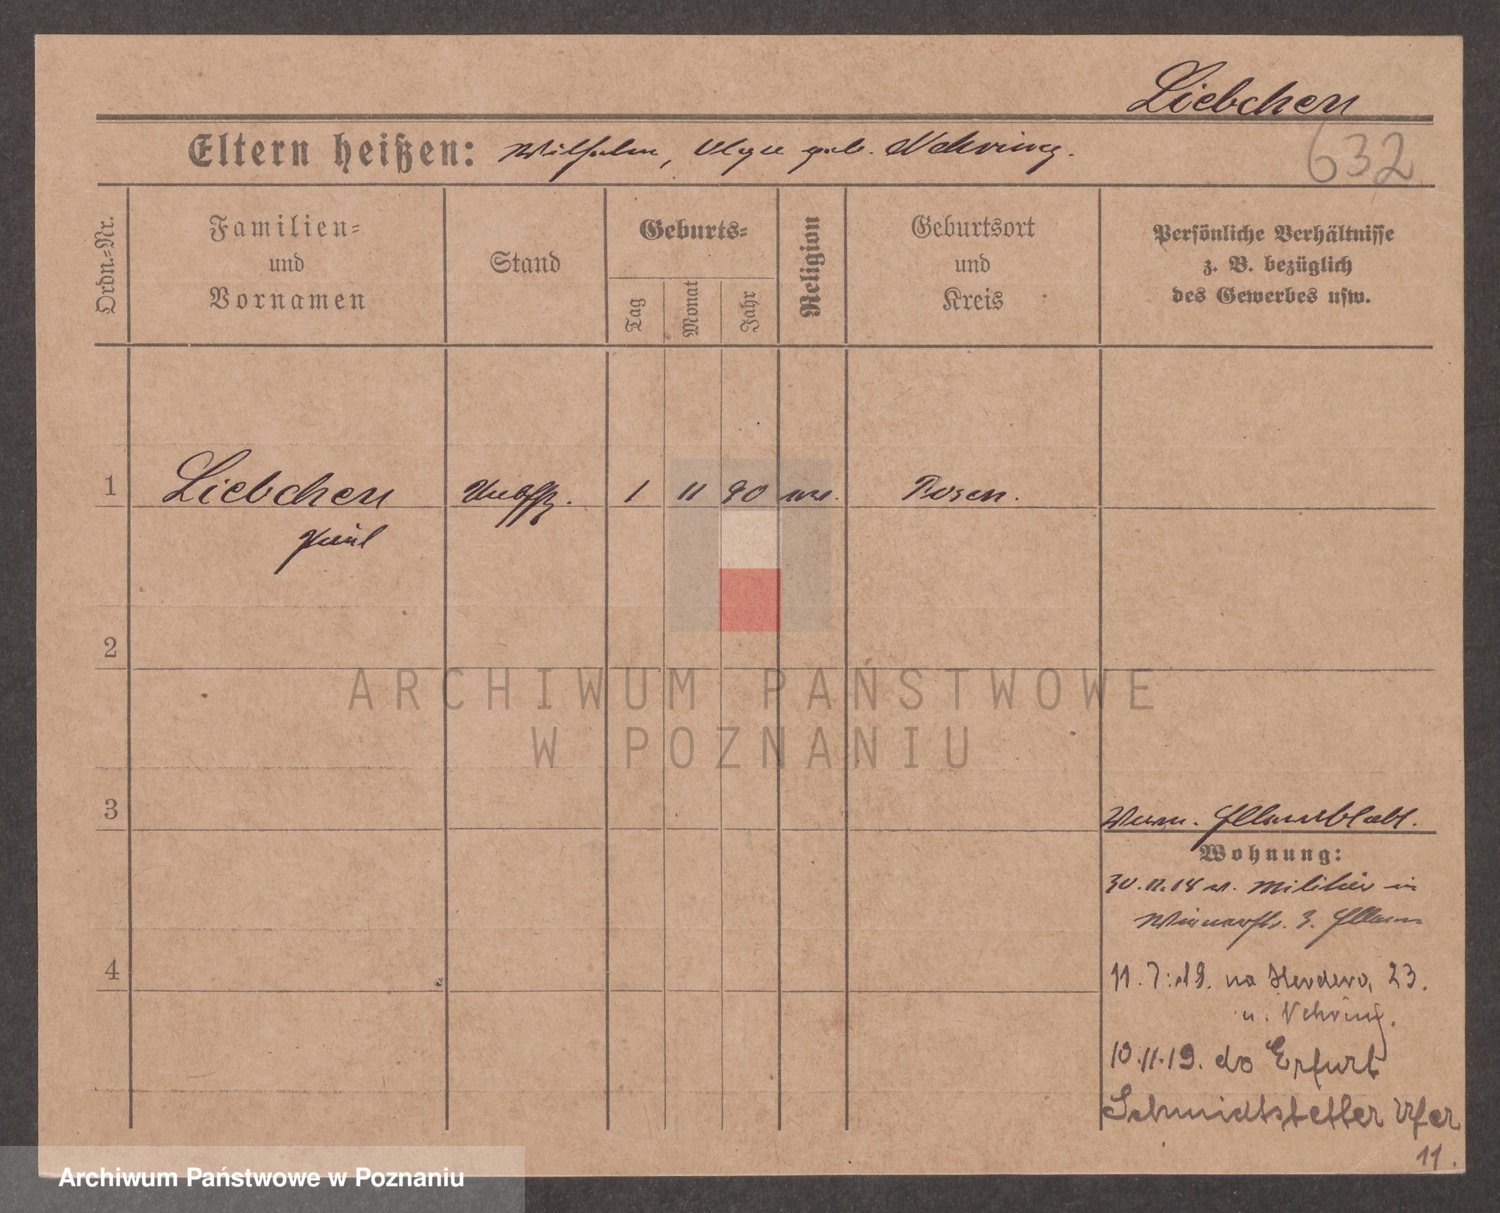 Liebchen
632
Eltern heißen: Wilhelm, Olga geb. Nehring.
Ordn.-Nr.
Familien-
und
Vornamen
Stand
Geburts-
Tag
Monat
Jahr
Religion
Geburtsort
und
Kreis
Persönliche Verhältnisse
z. B. bezüglich
des Gewerbes usw.
1 Liebchen 1 11 90 Posen.
Paul
2
3
4
Wohnung:
30.11.18 v. Militär in
3.
11.7.19. na Herdera, 23.
u. Nehring.
10.11.19. do Erfurt
Schmidtstetter Ufer
11.
ARCHIWUM PAŃSTWOWE
W POZNANIU
Archiwum Państwowe w Poznaniu